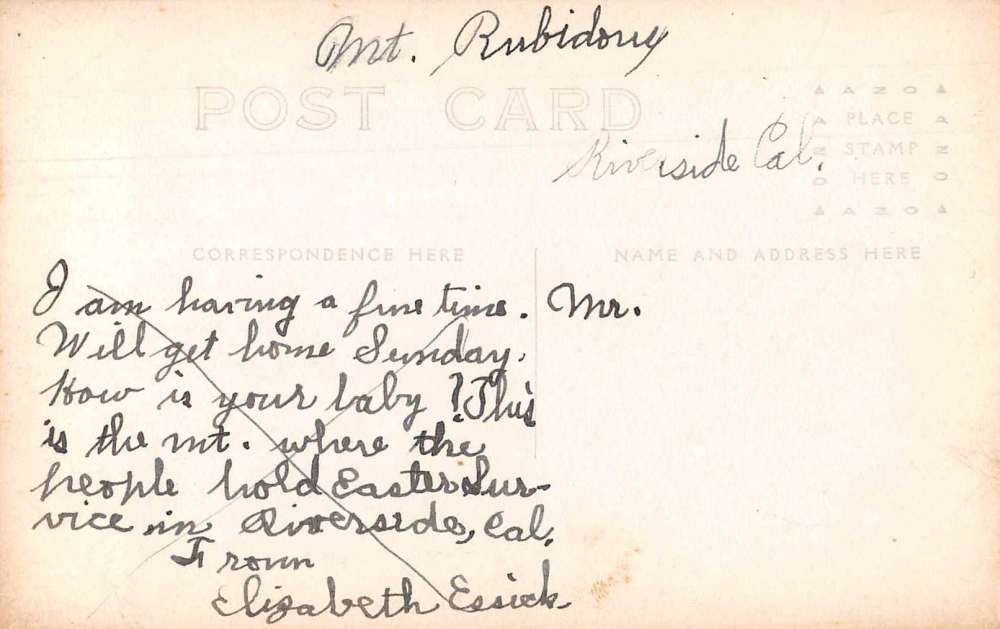 Mt. Rubidoux
POST CARD
Riverside Cal.
AZO
PLACE
STAMP
HERE
AZO
CORRESPONDENCE HERE
NAME AND ADDRESS HERE
I am having a fine time.
Will get home Sunday.
How is your baby? This
is the mt. where the
people hold Easter Ser-
vice in Riverside, Cal.
From
Elizabeth Essick
Mr.